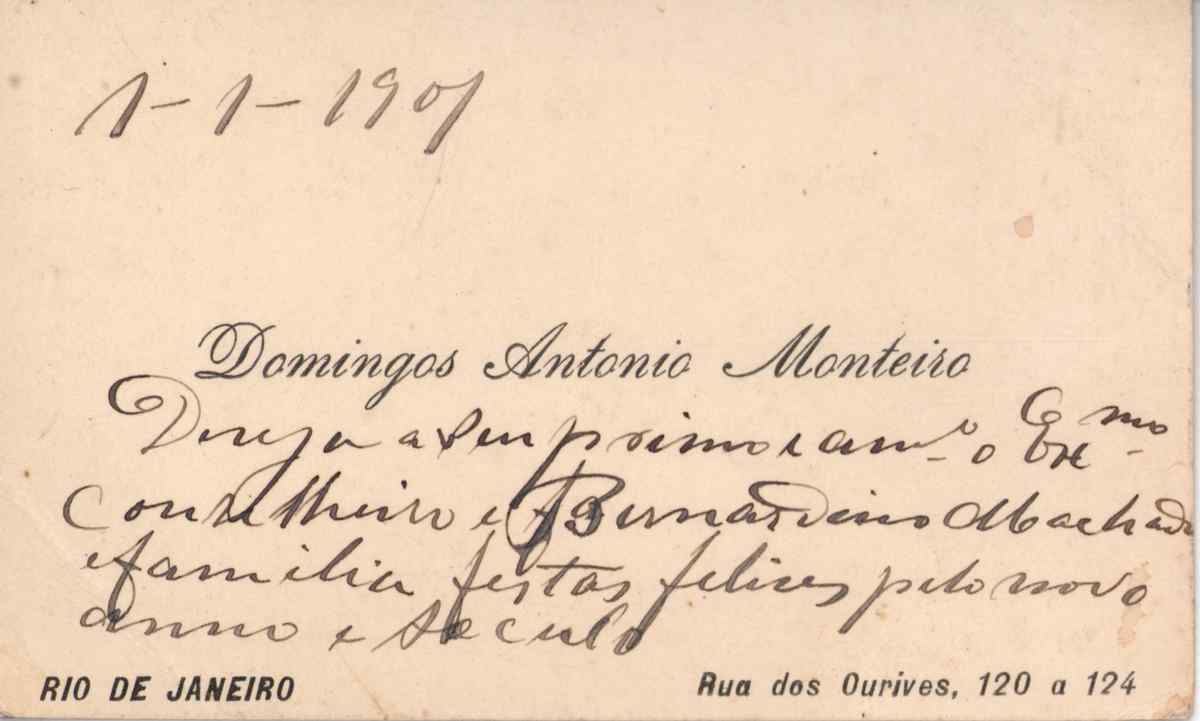 1-1-1901
Domingos Antonio Monteiro
Deseja a seu primo e am.º o Ex.mo
Conselheiro Bernardino Machado
e familia festas felises pelo novo
anno e seculo
RIO DE JANEIRO
Rua dos Ourives, 120 a 124